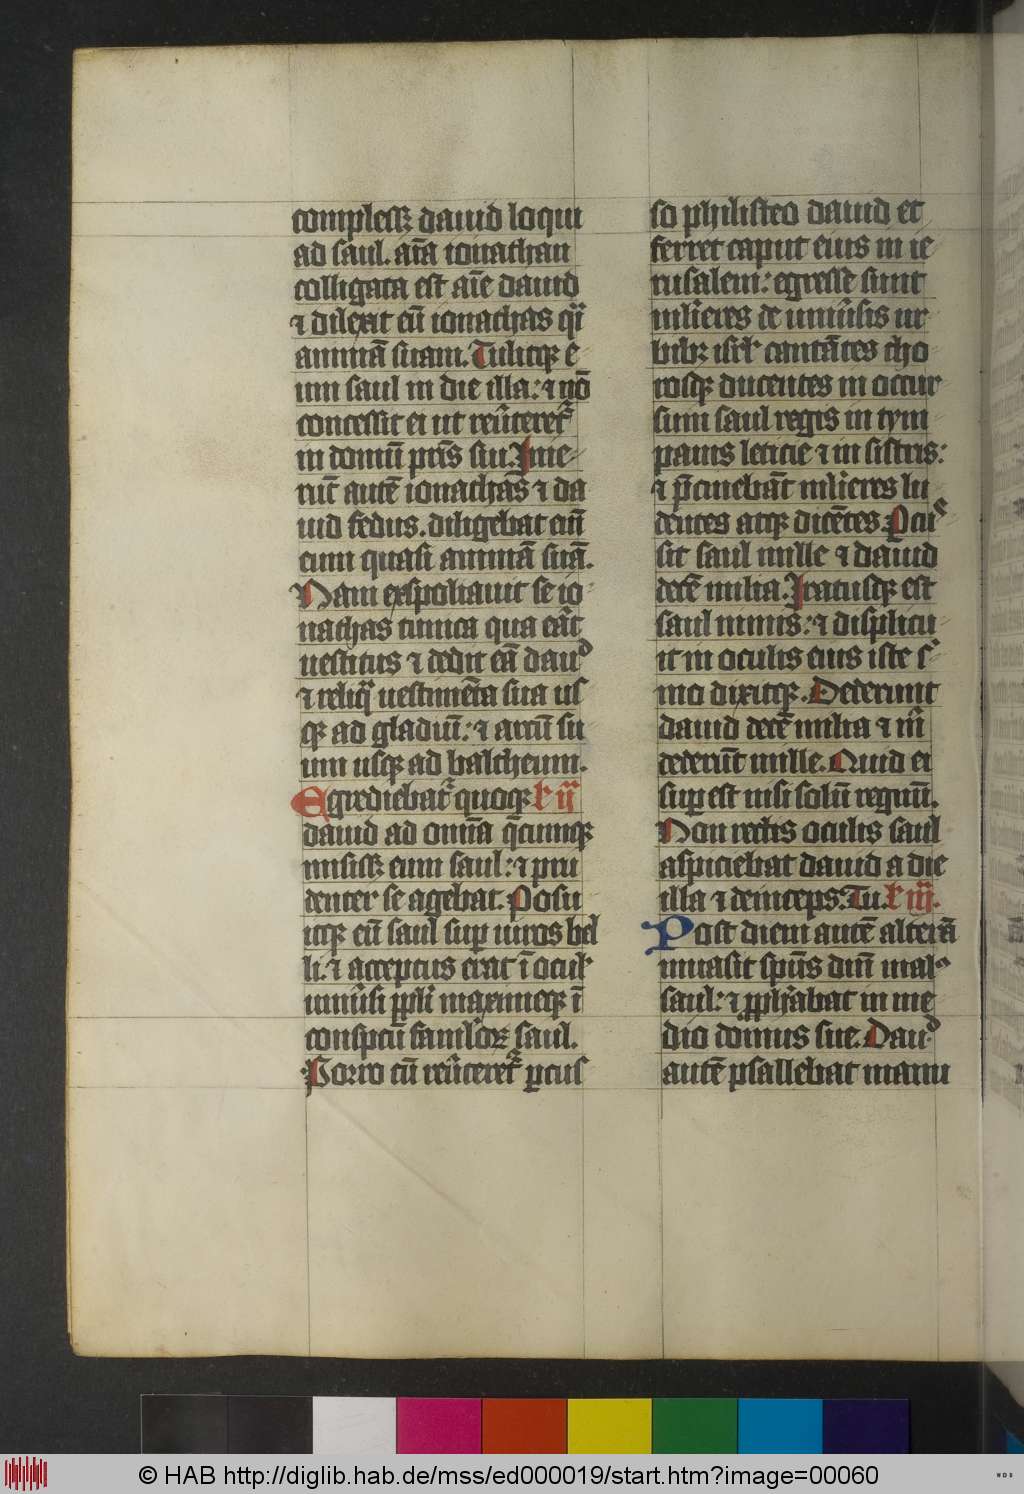 complessꝫ dauid loqui
ad saul. aīa ionathan
colligata est aīe dauid
⁊ dilexit eū ionathas qͥ
animā suam. Tulitqꝫ e
um saul in die illa: ⁊ nō
concessit ei ut reūteretᷣ
in domū pr̄is sui. Inie
rūt autē ionathās ⁊ da
uid fedus. diligebat eū
eum quasi animā suā.
Nam exspoliauit se io
nathas tunica qua eāt
uestitus ⁊ dedit eā dauᵈ
⁊ reliqͣ uestimēta sua us
qꝫ ad gladiū: ⁊ arcū su
um usqꝫ ad baltheum.
Egrediebatᷣ quoqꝫ ꝶ ij
dauid ad omīa q̄cumqꝫ
misissꝫ eum saul: ⁊ pru
denter se agebat. Posu
itqꝫ eū saul suꝑ uiros bel
li. ⁊ acceptus erat ī ocul'
uniūsi ppl'i maximeqꝫ ī
conspcū famul'oꝝ saul.
Porro cū reūteretᷣ ꝑcus
so philisteo dauid et
ferret caput eius in ie
rusalem: egresse sunt
mul'ieres de uniūsis ur
bibꝫ isrl' cantātes cho
rosqꝫ ducentes in occur
sum saul regis in tym
panis leticie ⁊ in sistris:
⁊ p̄cinebāt mul'ieres lu
dentes atqꝫ dicētes. Pcus
sit saul mille ⁊ dauid
decē milia. Iratusqꝫ est
saul nimis: ⁊ displicu
it in oculis eius iste s'
mo dixitqꝫ. Dederunt
dauid decē milia ⁊ mͥ
dederūt mille. Quid ei
suꝑ est nisi solū regnū.
Non rectis oculis saul
aspiciebat dauid a die
illa ⁊ deinceps. Tu. ꝶ iij.
Post diem autē alterā
inuasit sp̄us dn̄i malꝰ
saul: ⁊ ꝓph'abat in me
dio domus sue. Dauᵈ
autē psallebat manu
© HAB http://diglib.hab.de/mss/ed000019/start.htm?image=00060